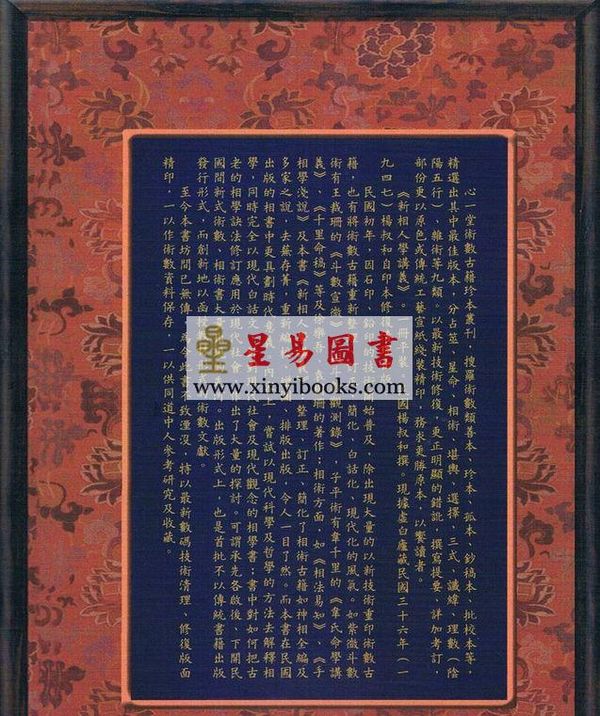 心一堂術數古籍珍本叢刊，搜羅術數類善本、珍本、孤本、鈔稿本、批校本等，
精選出其中最佳版本，分占筮、星命、相術、堪輿、選擇、三式、讖緯、理數（陰
陽五行）、雜術等九類。以最新技術修復、更正明顯的錯訛，撰寫提要，詳加考訂，
部份更以原色或傳統工藝宣紙綫裝精印，務求更勝原本，以饗讀者。
《新相人學講義》。 冊平裝 國楊叔和撰。現據虛白廬藏民國三十六年（一
九四七）楊叔和自印本修復
民國初年，因石印、鉛 的技 始普及，除出現大量的以新技術重印術數古
籍，也有將術數古籍重新整 訂、簡化、白話化、現代化的風氣。如紫微斗數
術有王栽珊的《斗數宣微》 斗 觀測錄》 子平術有韋千里的《韋氏命學講
義》、《千里命稿》等及徐樂吾、袁 珊的著作，相術方面，如《相法易知》、《手
相學淺說》及本書《新相人 整理、訂正、簡化了相術古籍如神相全編及
多家之說，去蕪存菁，重新編 排版出版，令人一目了然。而本書在民國
出版的相書中更具劃時代意義 內 上，嘗試以現代科學及哲學的方法去解釋相
學，同時完全以現代白話文 對 社會及現代觀念的相學書；書中對如何把古
老的相學訣法修訂應用於現 社會 出了大量的探討。可謂承先各啟後，下開民
國間新式術數、相術書大 情。出版形式上，也是首批不以傳統書籍出版
發行形式，而創新地以函授 術數文獻。
至今本書坊間已無傳，為令此重 致湮沒，特以最新數碼技術清理、修復版面
精印，一以作術數資料保存，一以供同道中人參考研究及收藏。
星易圖書
www.xinyibooks.com